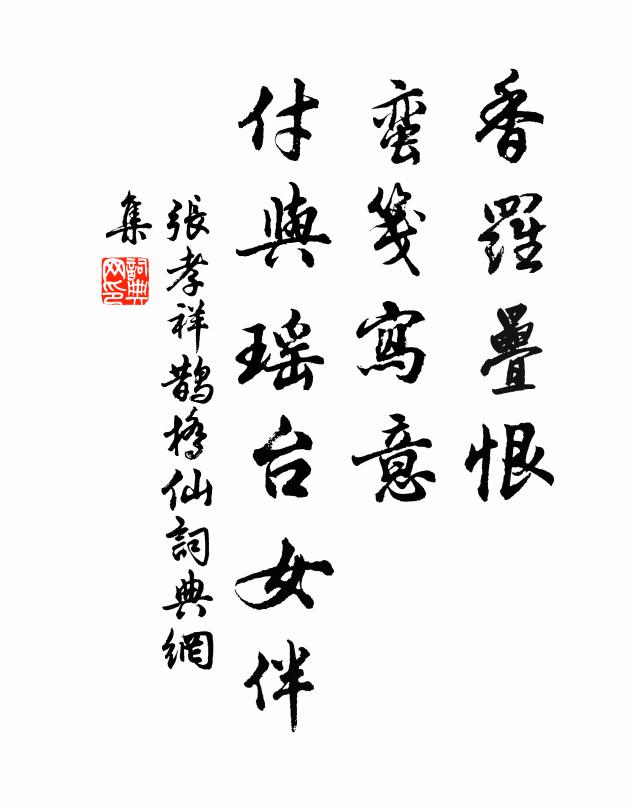 香羅疊恨
蛮箋寫意
付與瑶台女伴
張孝祥鵲橋仙詞典網
集
詞典網印